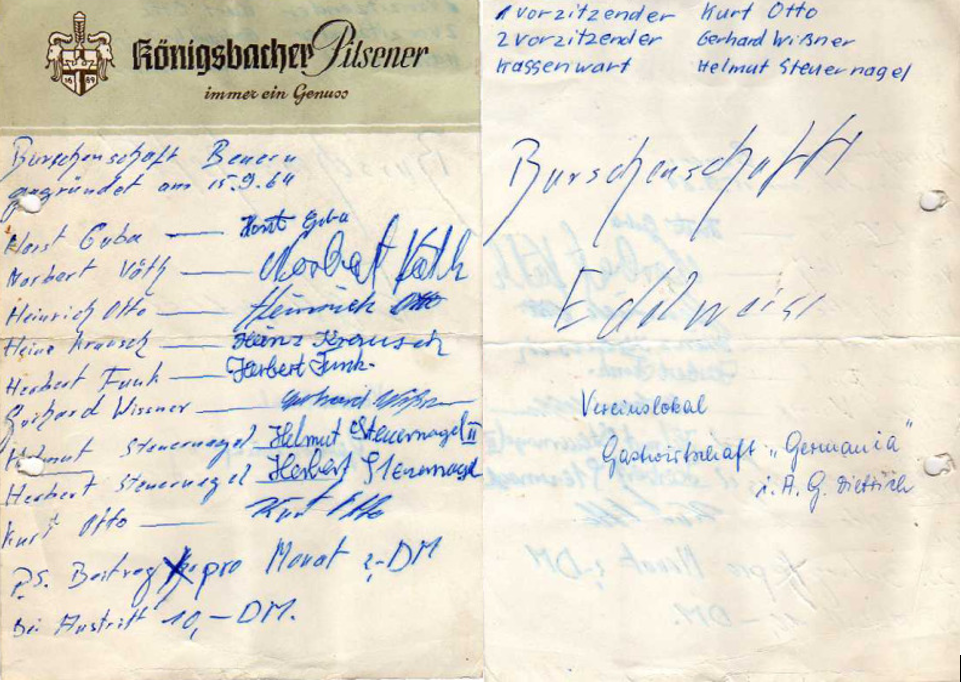 Königsbacher Pilsener
immer ein Genuss
16 89
Burschenschaft Beuern
gegründet am 15.9.64
Horst Guba — Horst Guba
Norbert Väth — Norbert Väth
Heinrich Otto — Heinrich Otto
Heinz Krausch — Heinz Krausch
Herbert Funk — Herbert Funk
Gerhard Wissner — Gerhard Wißner
Helmut Steuernagel Helmut Steuernagel II
Herbert Steuernagel Herbert Steuernagel
Kurt Otto — Kurt Otto
P.S. Beitrag pro Monat 2,-DM
bei Austritt 10,-DM.
1 Vorzitzender Kurt Otto
2 Vorzitzender Gerhard Wißner
Kassenwart Helmut Steuernagel
Burschenschaft
Edelweiss
Vereinslokal
Gastwirtschaft „Germania"
i.A. G. Dietrich